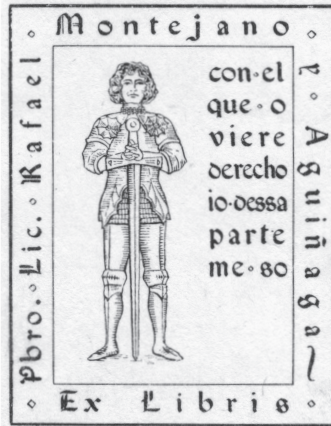 Pbro. Lic. Rafael
Montejano
y Aguiñaga
con el
que o
viere
derecho
io dessa
parte
me so
Ex Libris